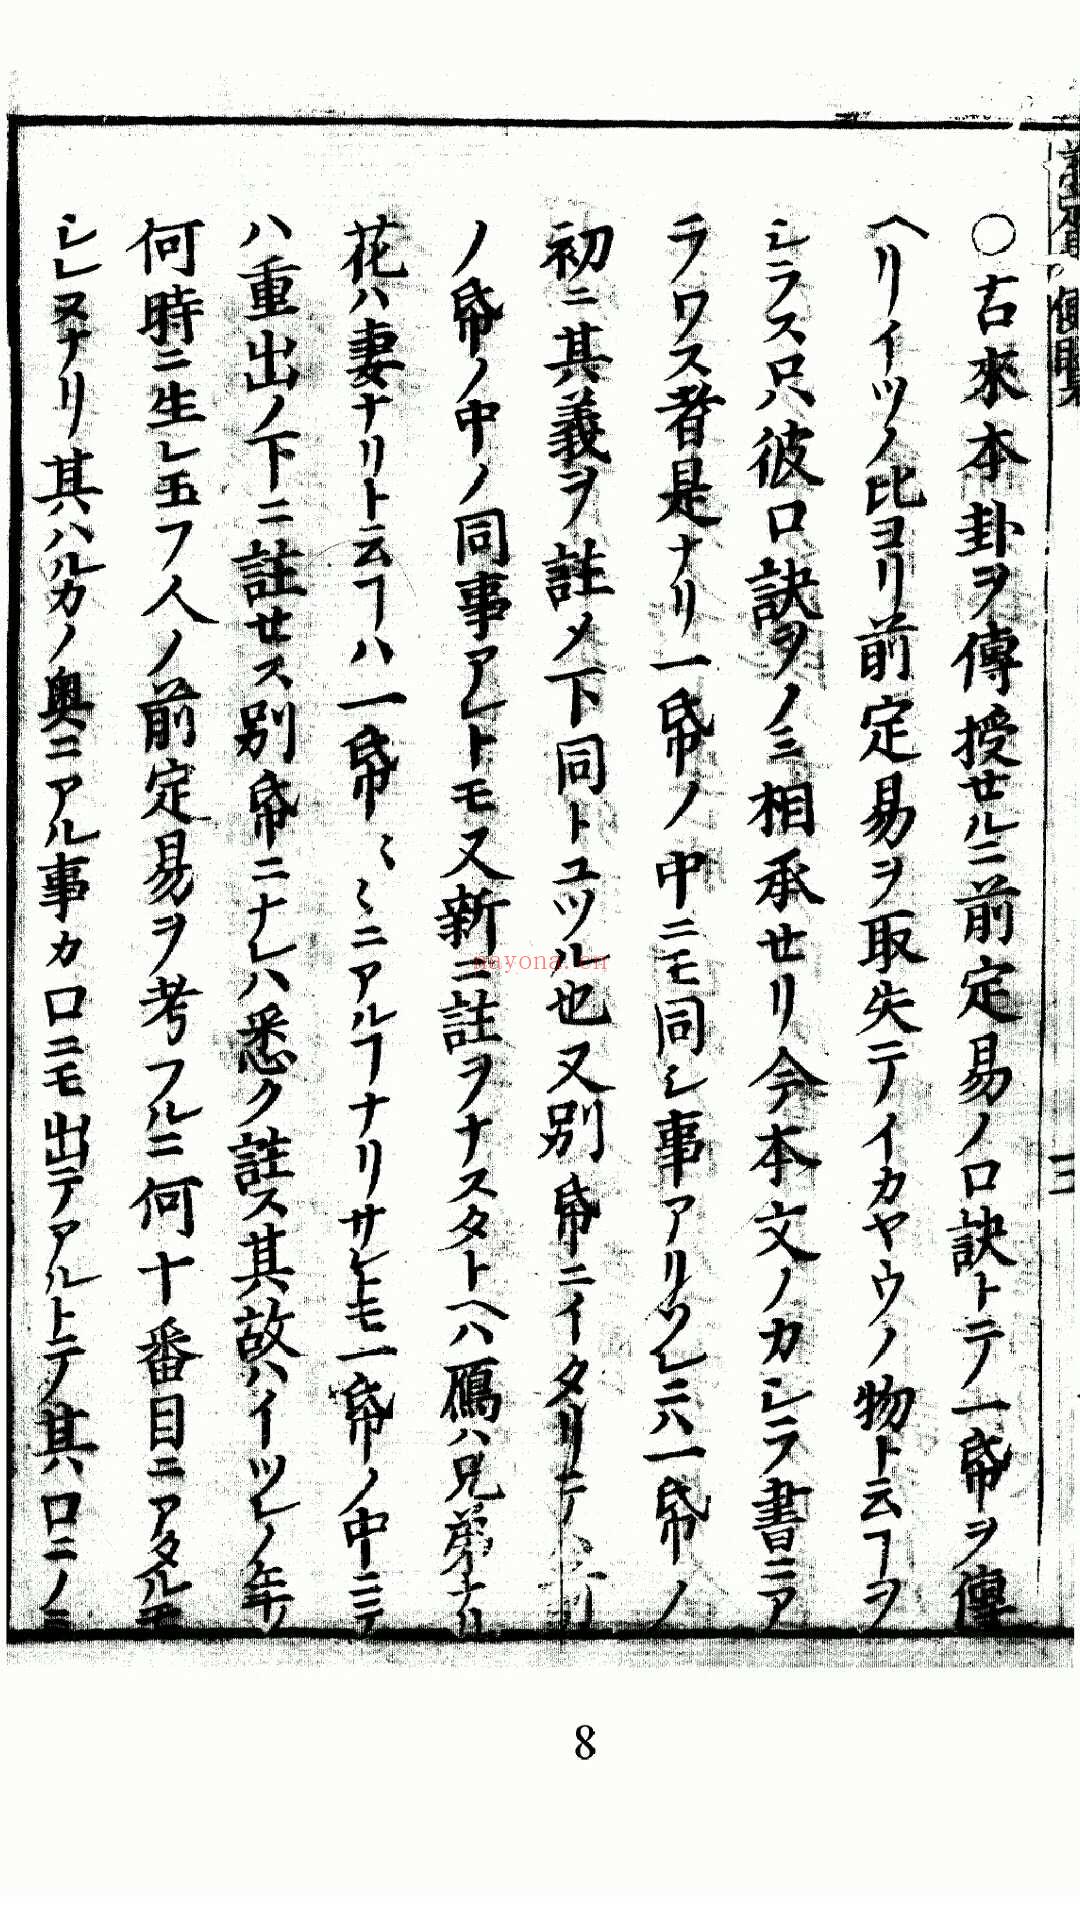 ○古來本卦ヲ傳授せルニ前定易ノ口訣トテ一帋ヲ傳
ヘリイツノ比ヨリ前定易ヲ取失テイカヤウノ物ト云ヿヲ
シラス只彼口訣ヲノミ相承せリ今本文ノカシラ書ニア
ラワス者是ナリ一帋ノ中ニモ同シ事アリソレニハ一帋ノ
初ニ其義ヲ註メ下同トユツル也又別帋ニイタリテ
ノ帋ノ中ノ同事アレトモ又新ニ註ヲナスタトヘハ鴈ハ兄弟ナリ
花ハ妻ナリト云ヿハ一帋〻〻ニアルヿナリサレトモ一帋ノ中ニテ
ハ重出ノ下ニ註せス別帋ニナレハ悉ク註ス其故ハイツレノ年ノ
何時ニ生レ玉フ人ノ前定易ヲ考フルニ何十番目ニアタルモ
シレヌナリ其ハルカノ奥ニアル事カ口ニモ出テアルトテ其ハ口ニノミ
三
nayona.cn
8